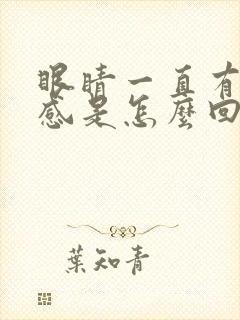 眼睛一直有
感是怎麼回
葉知青